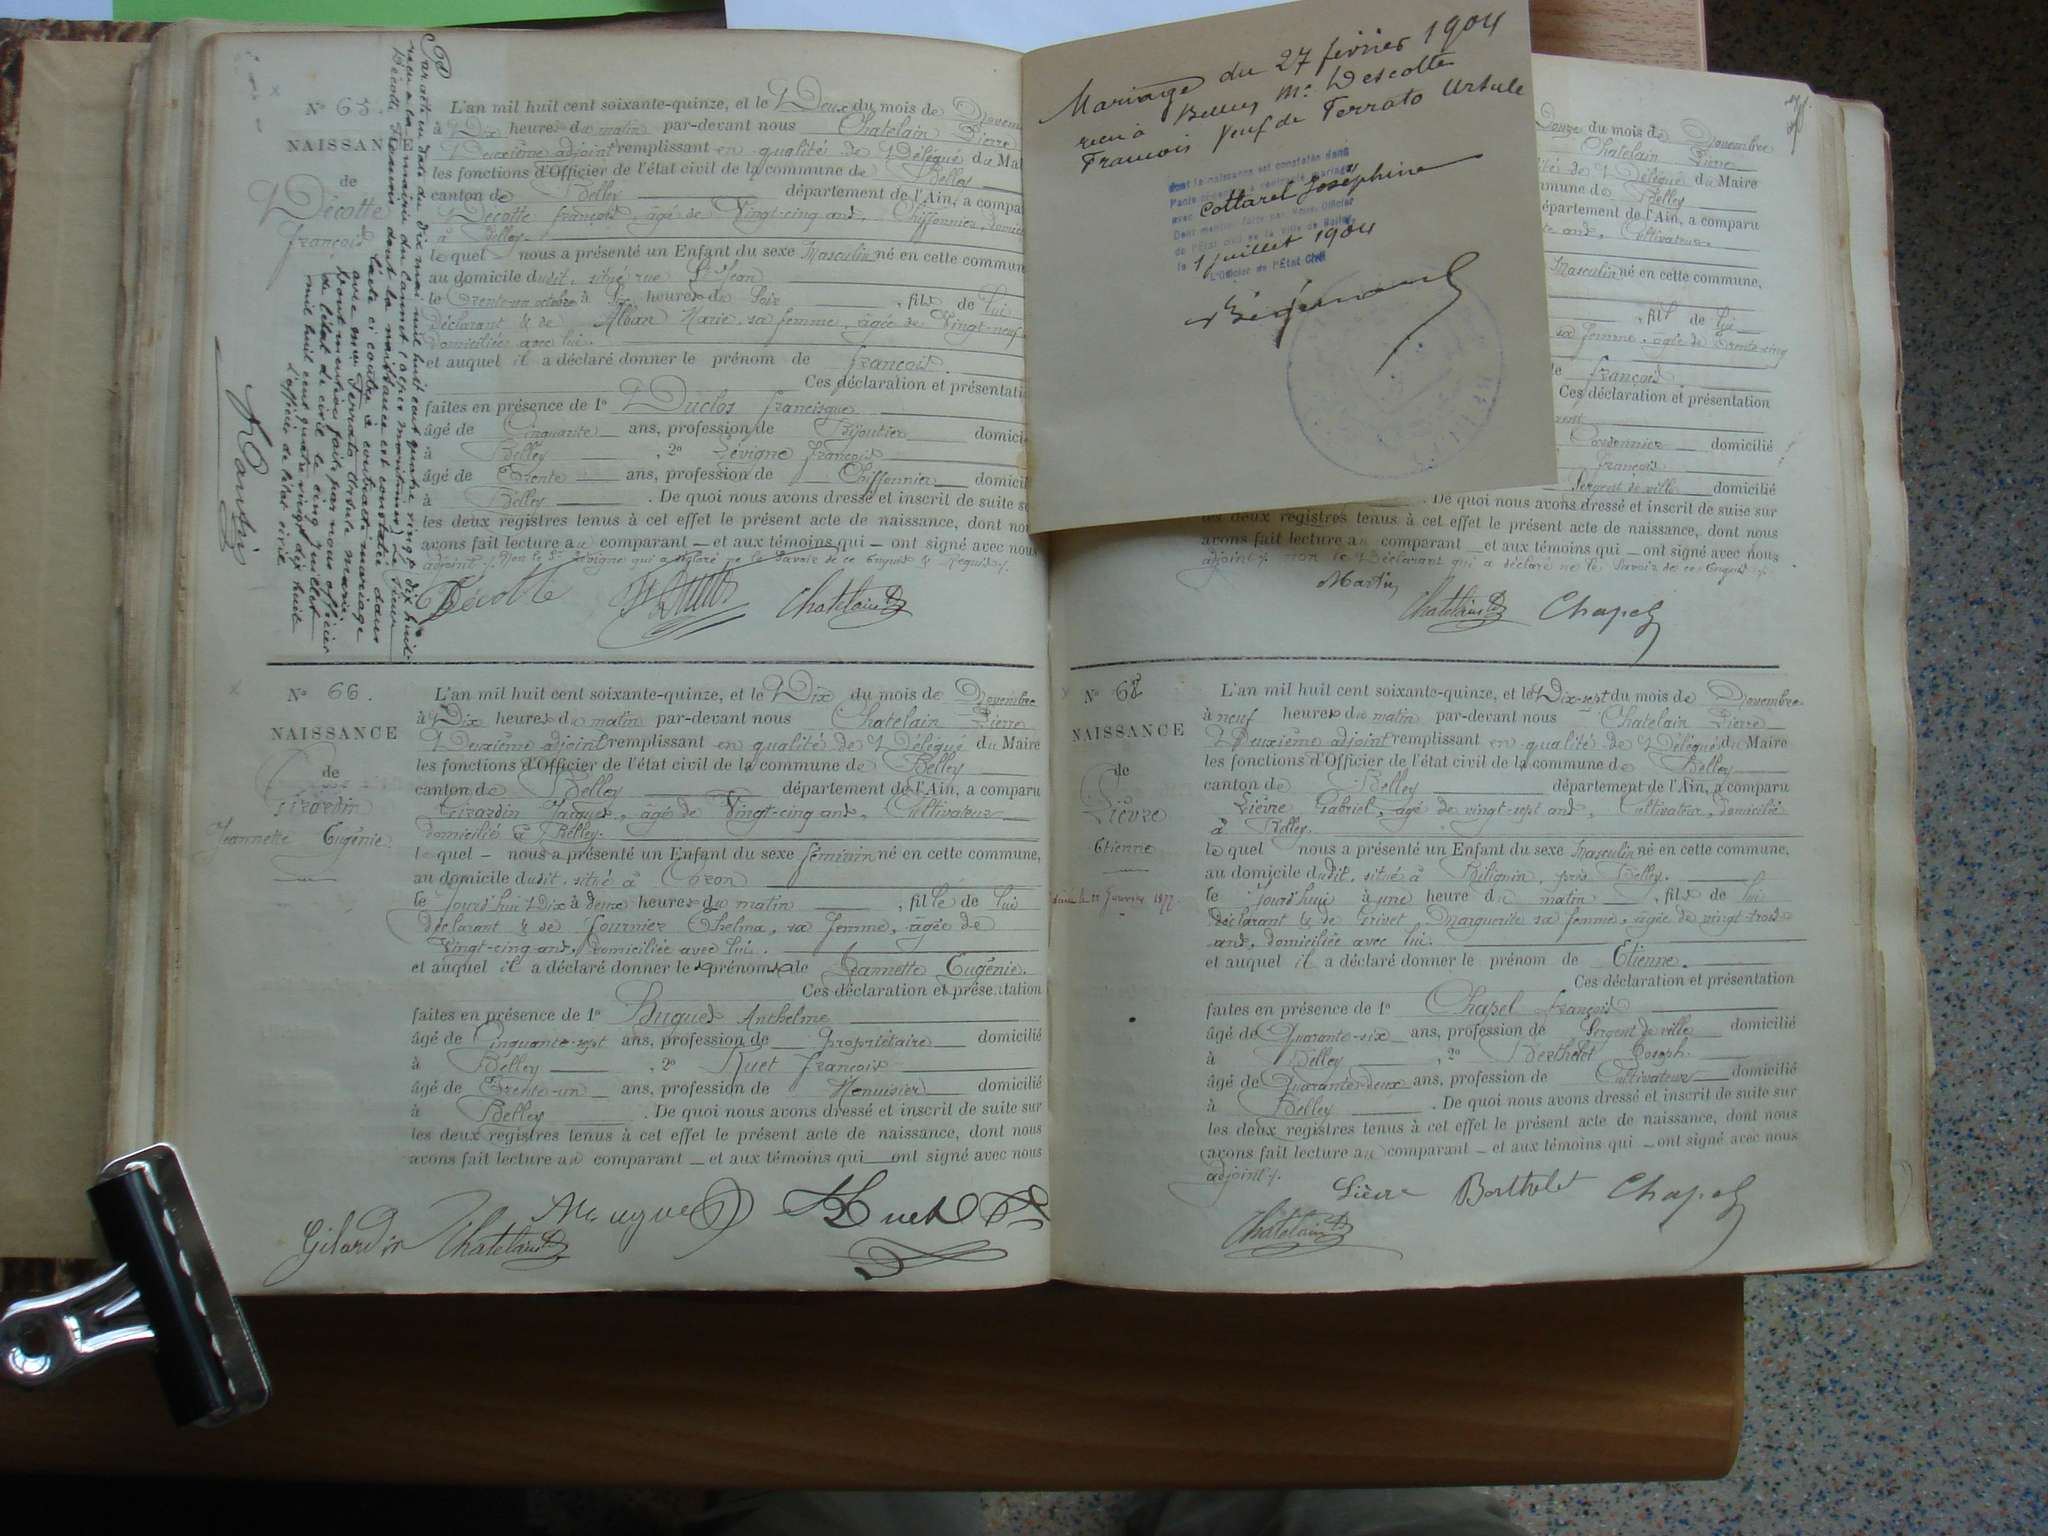 N° 65.
NAISSANCE
de
Décotte
françois
L'an mil huit cent soixante-quinze, et le Deux du mois de Novem
à Dix heures du matin par-devant nous Chatelain Pierre
Deuxième adjoint remplissant en qualité de Délégué du Mai
les fonctions d'Officier de l'état civil de la commune de Belley
canton de Belley département de l'Ain, a compa
Décotte françois, âgé de Vingt-cinq ans, Chiffonnier, domicil
à Belley.
le quel nous a présenté un Enfant du sexe Masculin né en cette commun
au domicile dudit, situé rue St Jean
le Trente-un octobre à Six heures du Soir, fils de lui
déclarant & de Alban Marie, sa femme, âgée de Vingt-neuf
domiciliée avec lui.
et auquel il a déclaré donner le prénom de françois.
Ces déclaration et présentatio
faites en présence de 1° Duclos francisque
âgé de Cinquante ans, profession de Bijoutier domicil
à Belley, 2° Lévigne françois
âgé de Trente ans, profession de Chiffonnier domicil
à Belley. De quoi nous avons dressé et inscrit de suite su
les deux registres tenus à cet effet le présent acte de naissance, dont nou
avons fait lecture au comparant et aux témoins qui ont signé avec nous
adjoint, Non le Sr Lévigne qui a déclaré ne le Savoir de ce Enquis & Requis.
Décotte Chatelain
Par acte en date du dix mai mil huit cent quatre vingt dix huit
reçu à la mairie du Cannet (alpes maritimes) Le sieur
Décotte François dont la naissance est constatée dans
l'acte ci contre a contracté mariage
avec Mme Terrato Ursule Marie
Dont mention faite par nous officier
de l'état civil le cinq juillet
mil huit cent quatre vingt dix huit
L'officier de l'état civil
Mariage du 27 février 1904
reçu à Belley Mr Descotte
Francois Veuf de Terrato Ursule
dont la naissance est constatée dans
l'acte
avec Cottarel Joséphine
Dont mention faite par Nous, Officier
de l'Etat civil de la Ville de Belley,
le 1 juillet 1904
L'Officier de l'Etat Civil
Douze du mois de Novembre
Chatelain Pierre
lité de Délégué du Maire
mmune de Belley
épartement de l'Ain, a comparu
ans, Cultivateur
Masculin né en cette commune,
, fils de lui
sa femme, âgée de Trente-cinq
le françois
Ces déclaration et présentation
Cordonnier domicilié
françois
Sergent de ville domicilié
. De quoi nous avons dressé et inscrit de suite sur
les deux registres tenus à cet effet le présent acte de naissance, dont nous
avons fait lecture au comparant et aux témoins qui ont signé avec nous
adjoint, non le Déclarant qui a déclaré ne le Savoir de ce Enquis
Martin
Chatelain Chapel
N° 66.
NAISSANCE
de
Girardin
Jeannette Eugénie
L'an mil huit cent soixante-quinze, et le Dix du mois de Novembre
à Dix heures du matin par-devant nous Chatelain Pierre
Deuxième adjoint remplissant en qualité de Délégué du Maire
les fonctions d'Officier de l'état civil de la commune de Belley
canton de Belley département de l'Ain, a comparu
Girardin Jacques, âgé de Vingt-cinq ans, Cultivateur
domicilié à Belley.
le quel nous a présenté un Enfant du sexe féminin né en cette commune,
au domicile dudit, situé à Coron
le Jourd'hui Dix à deux heures du matin, fille de lui
déclarant & de fournier Thelma, sa femme, âgée de
Vingt-cinq ans, domiciliée avec lui.
et auquel il a déclaré donner les prénoms de Jeannette Eugénie.
Ces déclaration et présentation
faites en présence de 1° Bugues Anthelme
âgé de Cinquante-sept ans, profession de Propriétaire domicilié
à Belley, 2° Huet françois
âgé de Trente-un ans, profession de Menuisier domicilié
à Belley. De quoi nous avons dressé et inscrit de suite sur
les deux registres tenus à cet effet le présent acte de naissance, dont nous
avons fait lecture au comparant et aux témoins qui ont signé avec nous
Gilardin Chatelain Huet
N° 68
NAISSANCE
de
Lièvre
Etienne
L'an mil huit cent soixante-quinze, et le Dix-sept du mois de Novembre
à neuf heures du matin par-devant nous Chatelain Pierre
Deuxième adjoint remplissant en qualité de Délégué du Maire
les fonctions d'Officier de l'état civil de la commune de Belley
canton de Belley département de l'Ain, a comparu
Lièvre Gabriel, âgé de vingt-sept ans, Cultivateur, domicilié
à Belley.
le quel nous a présenté un Enfant du sexe Masculin né en cette commune,
au domicile dudit, situé à Billignin, près Belley.
le jourd'hui à une heure du matin, fils de lui
déclarant & de Grivet Marguerite sa femme, âgée de vingt-trois
ans, domiciliée avec lui.
et auquel il a déclaré donner le prénom de Etienne.
Ces déclaration et présentation
faites en présence de 1° Chapel françois
âgé de Quarante-six ans, profession de Sergent de ville domicilié
à Belley, 2° Berthelet Joseph
âgé de Quarante-deux ans, profession de Cultivateur domicilié
à Belley. De quoi nous avons dressé et inscrit de suite sur
les deux registres tenus à cet effet le présent acte de naissance, dont nous
avons fait lecture au comparant et aux témoins qui ont signé avec nous
adjoint.
Lièvre Berthelet Chapel
Chatelain